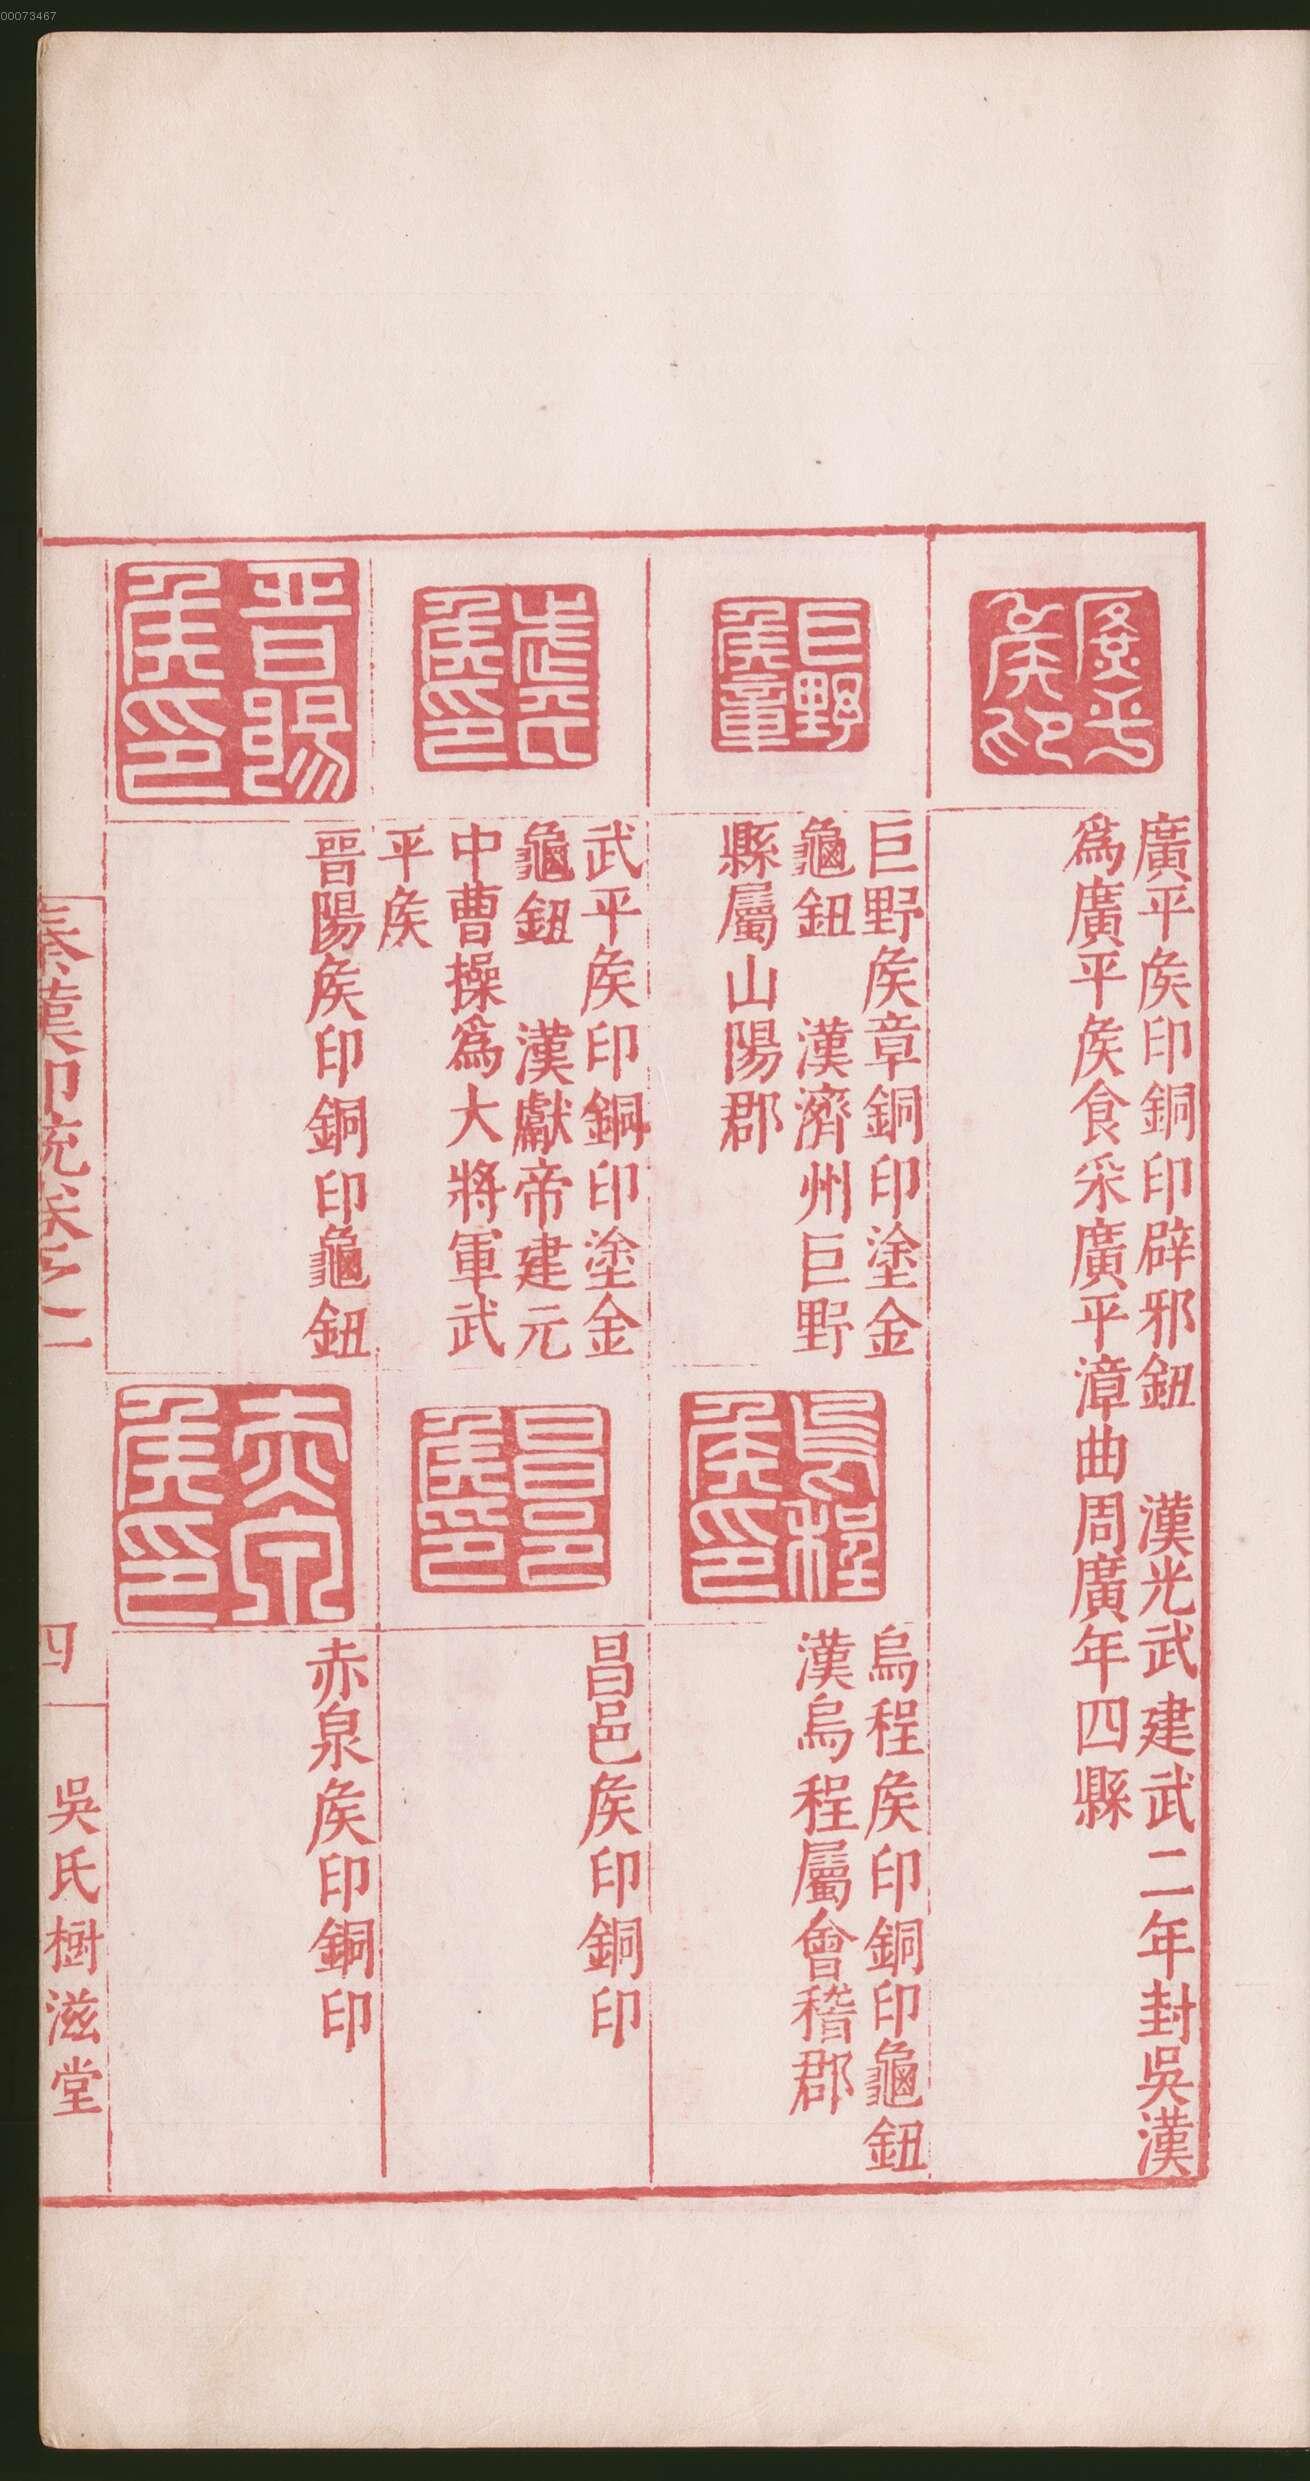 00073467
廣平侯印
廣平矦印銅印辟邪鈕　漢光武建武二年封吳漢
爲廣平矦食采廣平漳曲周廣年四縣
巨野侯章
巨野矦章銅印塗金
龜鈕　漢濟州巨野
縣屬山陽郡
烏程侯印
烏程矦印銅印龜鈕
漢烏程屬會稽郡
武平侯印
武平矦印銅印塗金
龜鈕　漢獻帝建元
中曹操爲大將軍武
平矦
昌邑侯印
昌邑矦印銅印
晉陽侯印
晉陽矦印銅印龜鈕
赤泉侯印
赤泉矦印銅印
秦漢印統卷之二
四
吳氏樹滋堂